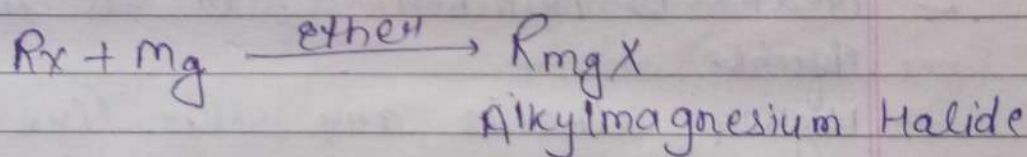 Rx + Mg ether → RmgX
Alkylmagnesium Halide